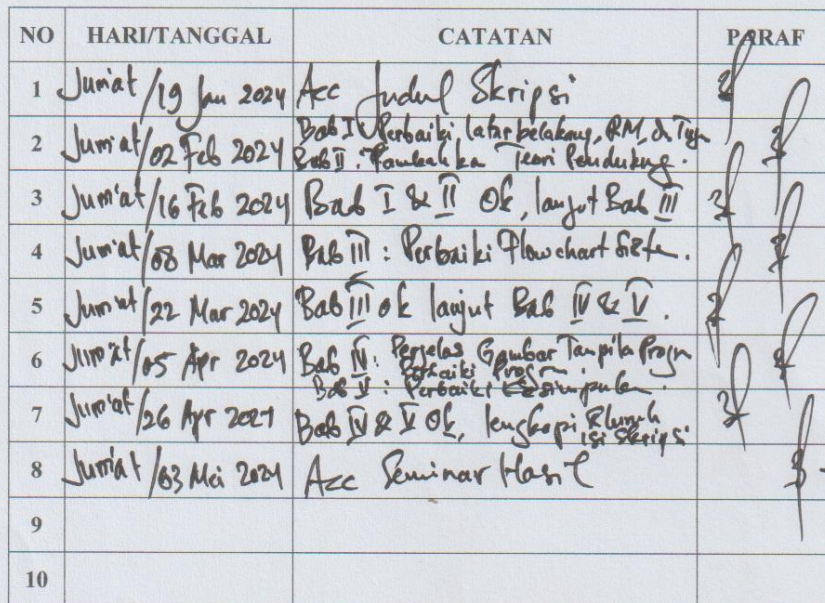 NO HARI/TANGGAL CATATAN PARAF
1 Jum'at/19 Jan 2024 Acc Judul Skripsi
2 Jum'at/02 Feb 2024 Bab I Perbaiki latar belakang, RM, dn Tujn
Bab II : Tambahkan Teori Pendukung.
3 Jum'at/16 Feb 2024 Bab I & II Ok, lanjut Bab III
4 Jum'at/08 Mar 2024 Bab III : Perbaiki Flowchart Sistem.
5 Jum'at/22 Mar 2024 Bab III ok lanjut Bab IV & V.
6 Jum'at/05 Apr 2024 Bab IV : Perjelas Gambar Tampila Progrm
Perbaiki Progrm
Bab V : Perbaiki Kesimpulan.
7 Jum'at/26 Apr 2024 Bab IV & V Ok, lengkapi Seluruh
isi Skripsi
8 Jum'at/03 Mei 2024 Acc Seminar Hasil
9
10